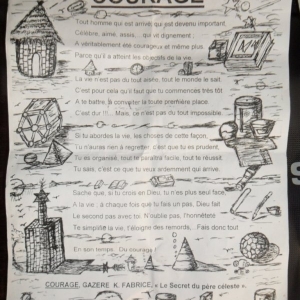 COURAGE
Tout homme qui est arrivé, qui est devenu important,
Célèbre, aimé, assis, qui vit dignement ;
A véritablement été courageux et même plus.
Parce qu'il a atteint les objectifs de la vie.
La vie n'est pas du tout aisée, tout le monde le sait.
C'est pour cela qu'il faut que tu commences très tôt
A te battre, à convoiter la toute première place.
C'est dur !!!. Mais, ce n'est pas du tout impossible.
Si tu abordes la vie, les choses de cette façon,
Tu n'auras rien à regretter, c'est que tu es prudent,
Tu es organisé, tout te paraîtra facile, tout te réussit.
Tu sais, c'est ce que tu veux ardemment qui arrive.
Sache que, si tu crois en Dieu, tu n'es plus seul face
A la vie ; à chaque fois que tu fais un pas, Dieu fait
Le second pas avec toi. N'oublie pas, l'honnêteté
Te simplifie la vie, t'éloigne des remords, Fais donc tout
En son temps. Du courage
COURAGE, GAZERE K. FABRICE, « Le Secret du père céleste ».